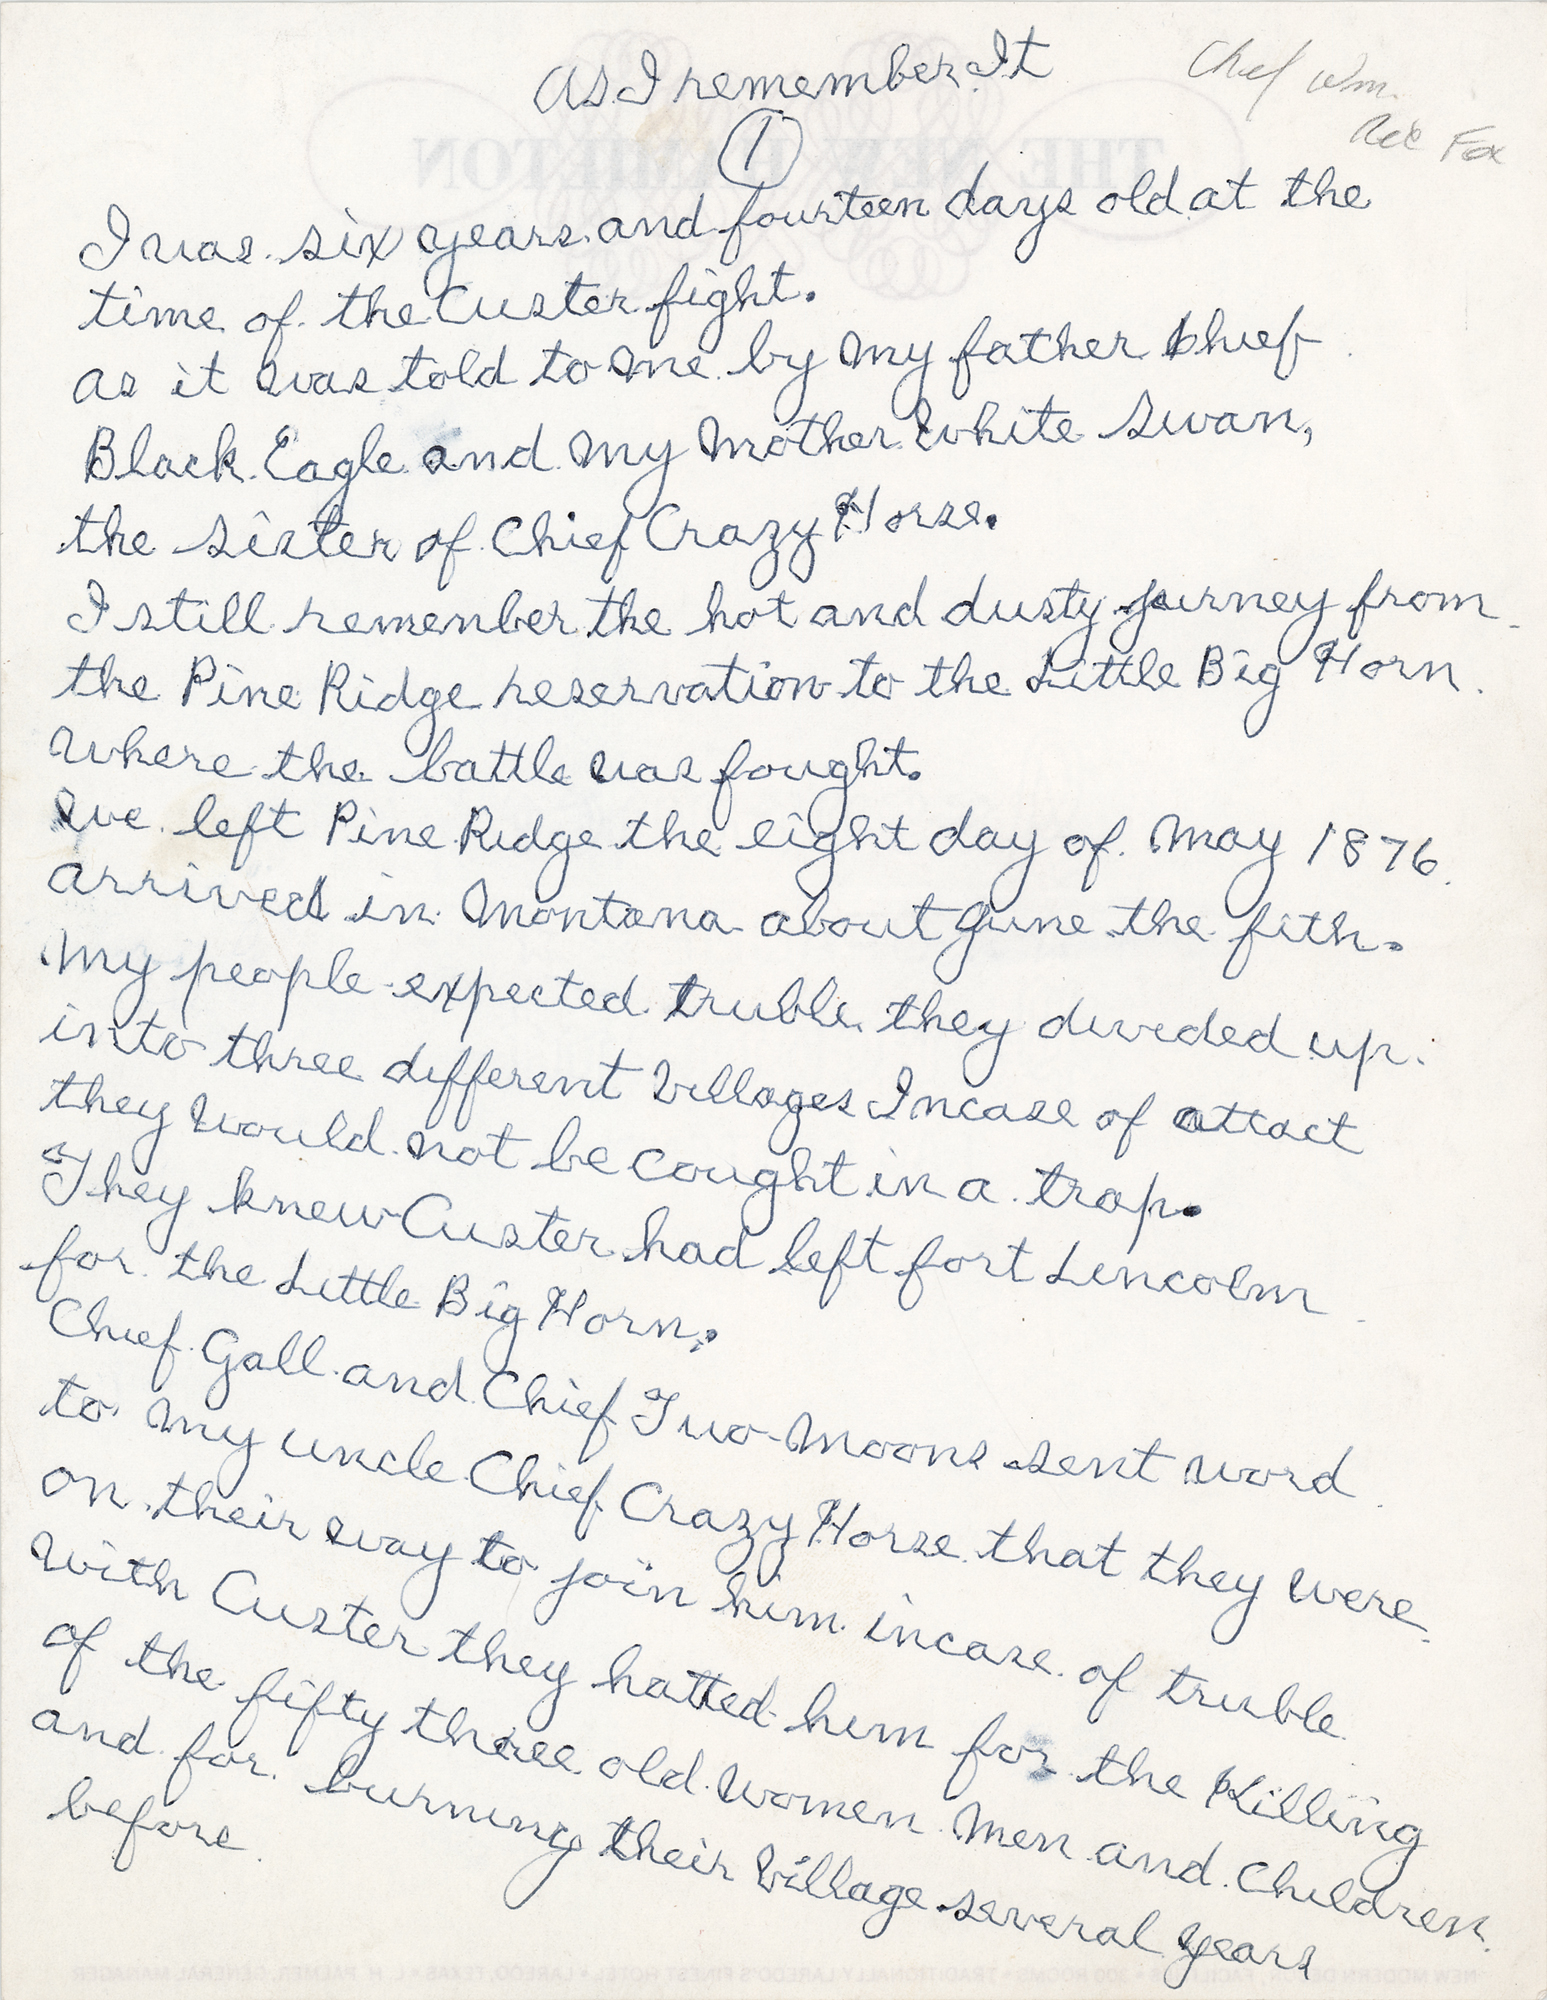 As I remember It
Chief Wm.
Red Fox
1
I was six years and fourteen days old at the
time of the Custer fight.
as it was told to me by my father Chief
Black Eagle and my mother White Swan,
the sister of Chief Crazy Horse.
I still remember the hot and dusty jurney from
the Pine Ridge reservation to the Little Big Horn
where the battle was fought.
we left Pine Ridge the eight day of May 1876
arrived in Montana about June the fith.
My people expected truble they divided up
into three different Villages Incase of attact
they would not be cought in a trap.
They knew Custer had left fort Lincolm
for the Little Big Horn.
Chief Gall and Chief Two-Moons sent word
to my uncle Chief Crazy Horse that they were
on their way to join him incase of truble
with Custer they hatted him for the Killing
of the fifty three old women Men and Children
and for burning their Village several years
before
THE NEW HAMILTON
NEW MODERN DECOR, FACILITIES • 300 ROOMS • TRADITIONALLY LAREDO'S FINEST HOTEL • LAREDO, TEXAS • L. H. PALMER, GENERAL MANAGER